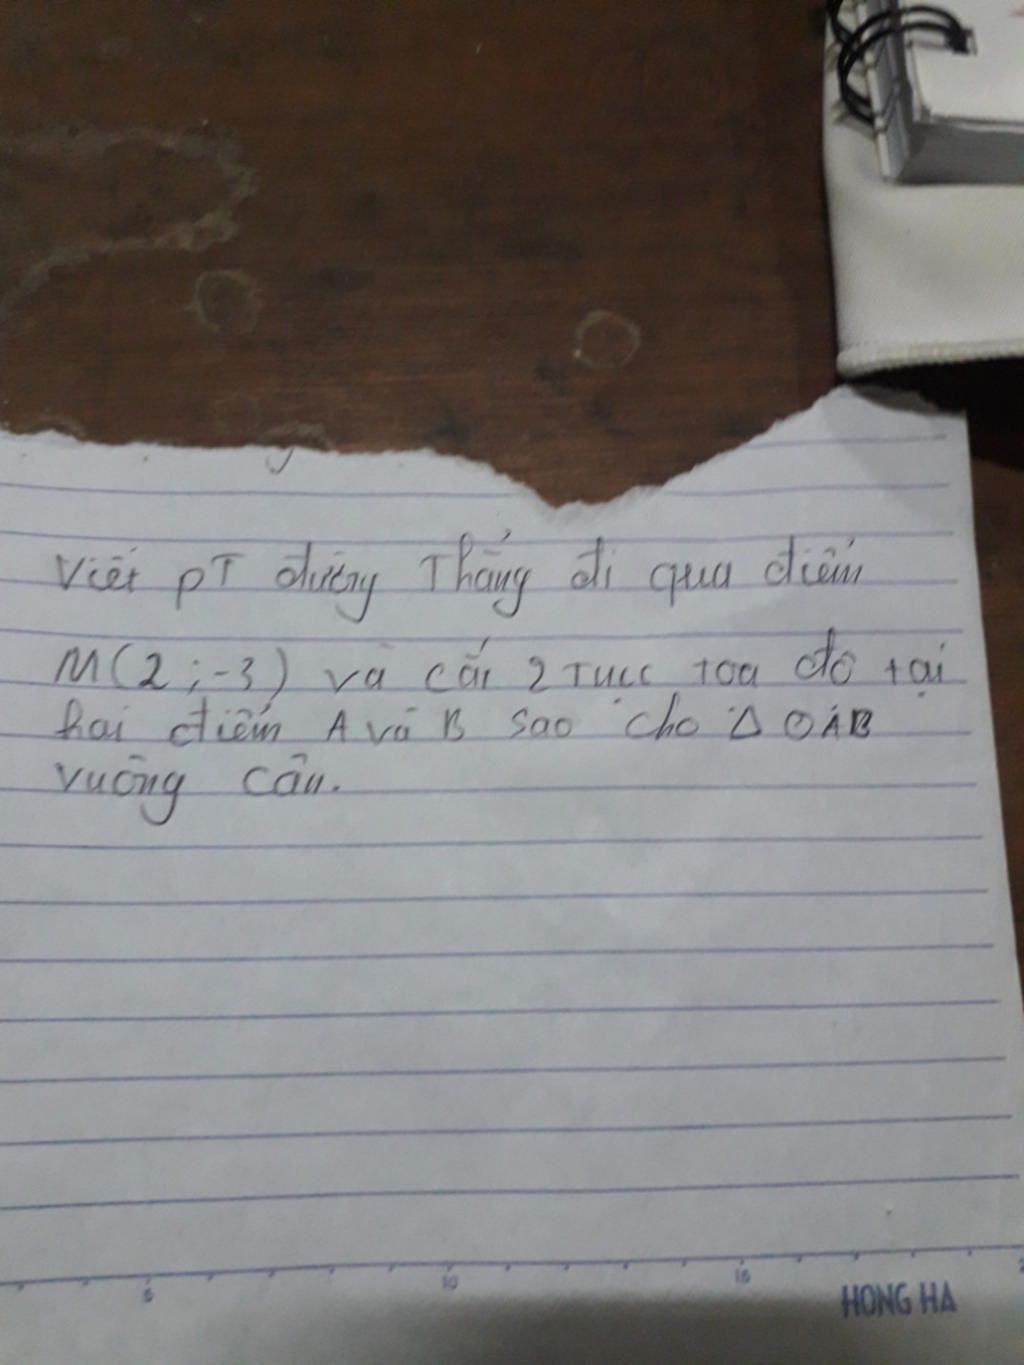 Viết pT đường Thẳng đi qua điểm
M(2;-3) và cắt 2 Tục toạ độ tại
hai điểm A và B sao cho Δ OAB
vuông cân.
5 10 15
HONG HA